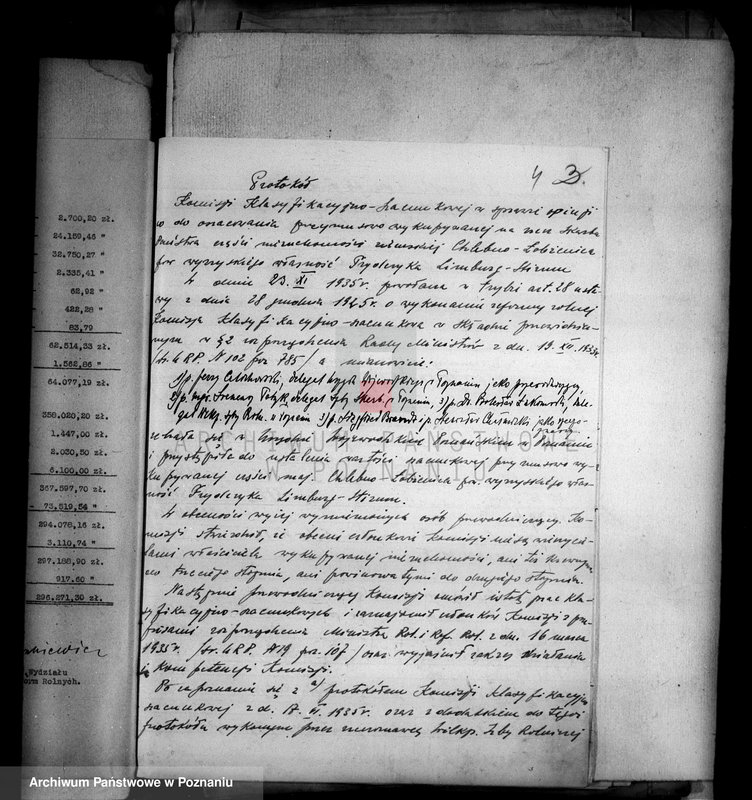 2.700,20 zł.
24.159,46 "
32.750,27 "
2.335,41 "
62,92 "
422,28 "
83,79
62.514,33 zł.
1.562,86 "
64.077,19 zł.
358.020,20 zł.
1.447,00 zł.
2.030,50 zł.
6.100,00 zł.
367.597,70 zł.
73.519,54 "
294.078,16 zł.
3.110,74 "
297.188,90 zł.
917.60 "
296.271.30 zł.
Wydziału
orm Rolnych.
4 3.
Protokół
Komisji Klasyfikacyjno-szacunkowej w sprawie opinji
co do oszacowania przymusowo wykupywanej na rzecz Skarbu
Państwa części nieruchomości ziemskiej Chlebno-Łobżenica
pow. wyrzyskiego własność Fryderyka Limburg-Stirum
W dniu 23. XI 1935r. powołana w trybie art. 28 usta-
wy z dnia 28 grudnia 1925r. o wykonaniu reformy rolnej
Komisja Klasyfikacyjno-szacunkowa w składzie przewidzia-
nym w § 2 rozporządzenia Rady Ministrów z dn. 19. XII. 1933r.
Dz. U. R.P. N 102 poz. 785/ a mianowicie:
1/ p. Jerzy delegat Urzędu Wojewódzkiego w Poznaniu jako przewodniczący,
2/ p. inż. delegat Izby Skarb. w Poznaniu, 3/ p. Dr.
Izby Roln. w Poznaniu 3/ p. p. jako
zebrała się w Urzędzie Wojewódzkim Poznańskim w Poznaniu
i przystąpiła do ustalenia wartości szacunkowej przymusowo wy-
kupywanej części maj. Chlebno Łobżenica pow. wyrzyskiego włas-
ność Fryderyka Limburg-Stirum.
W obecności wyżej wymienionych osób przewodniczący Ko-
misji stwierdził, że obecni członkowie Komisji nie są wierzycie-
lami właściciela wykupywanej nieruchomości, ani też krewnymi
do trzeciego stopnia, ani powinowatymi do drugiego stopnia.
Następnie przewodniczący Komisji omówił istotę prac kla-
syfikacyjno-szacunkowych i zaznajomił członków Komisji z prze-
pisami rozporządzenia Ministra Rol. i Ref. Rol. z dn. 16 marca
1935r. /Dz. U. R.P. N19 poz. 107/ oraz wyjaśnił zakres działania
i kompetencji Komisji.
Po zapoznaniu się z a/ protokółem Komisji Klasyfikacyjno
szacunkowej z d. 17. VI. 1935r. oraz z dodatkiem do tegoż
protokółu wykonanym przez mierniczego Wilkp. Izby Rolniczej
ARCHIWUM PAŃSTWOWE
W POZNANIU
Archiwum Państwowe w Poznaniu